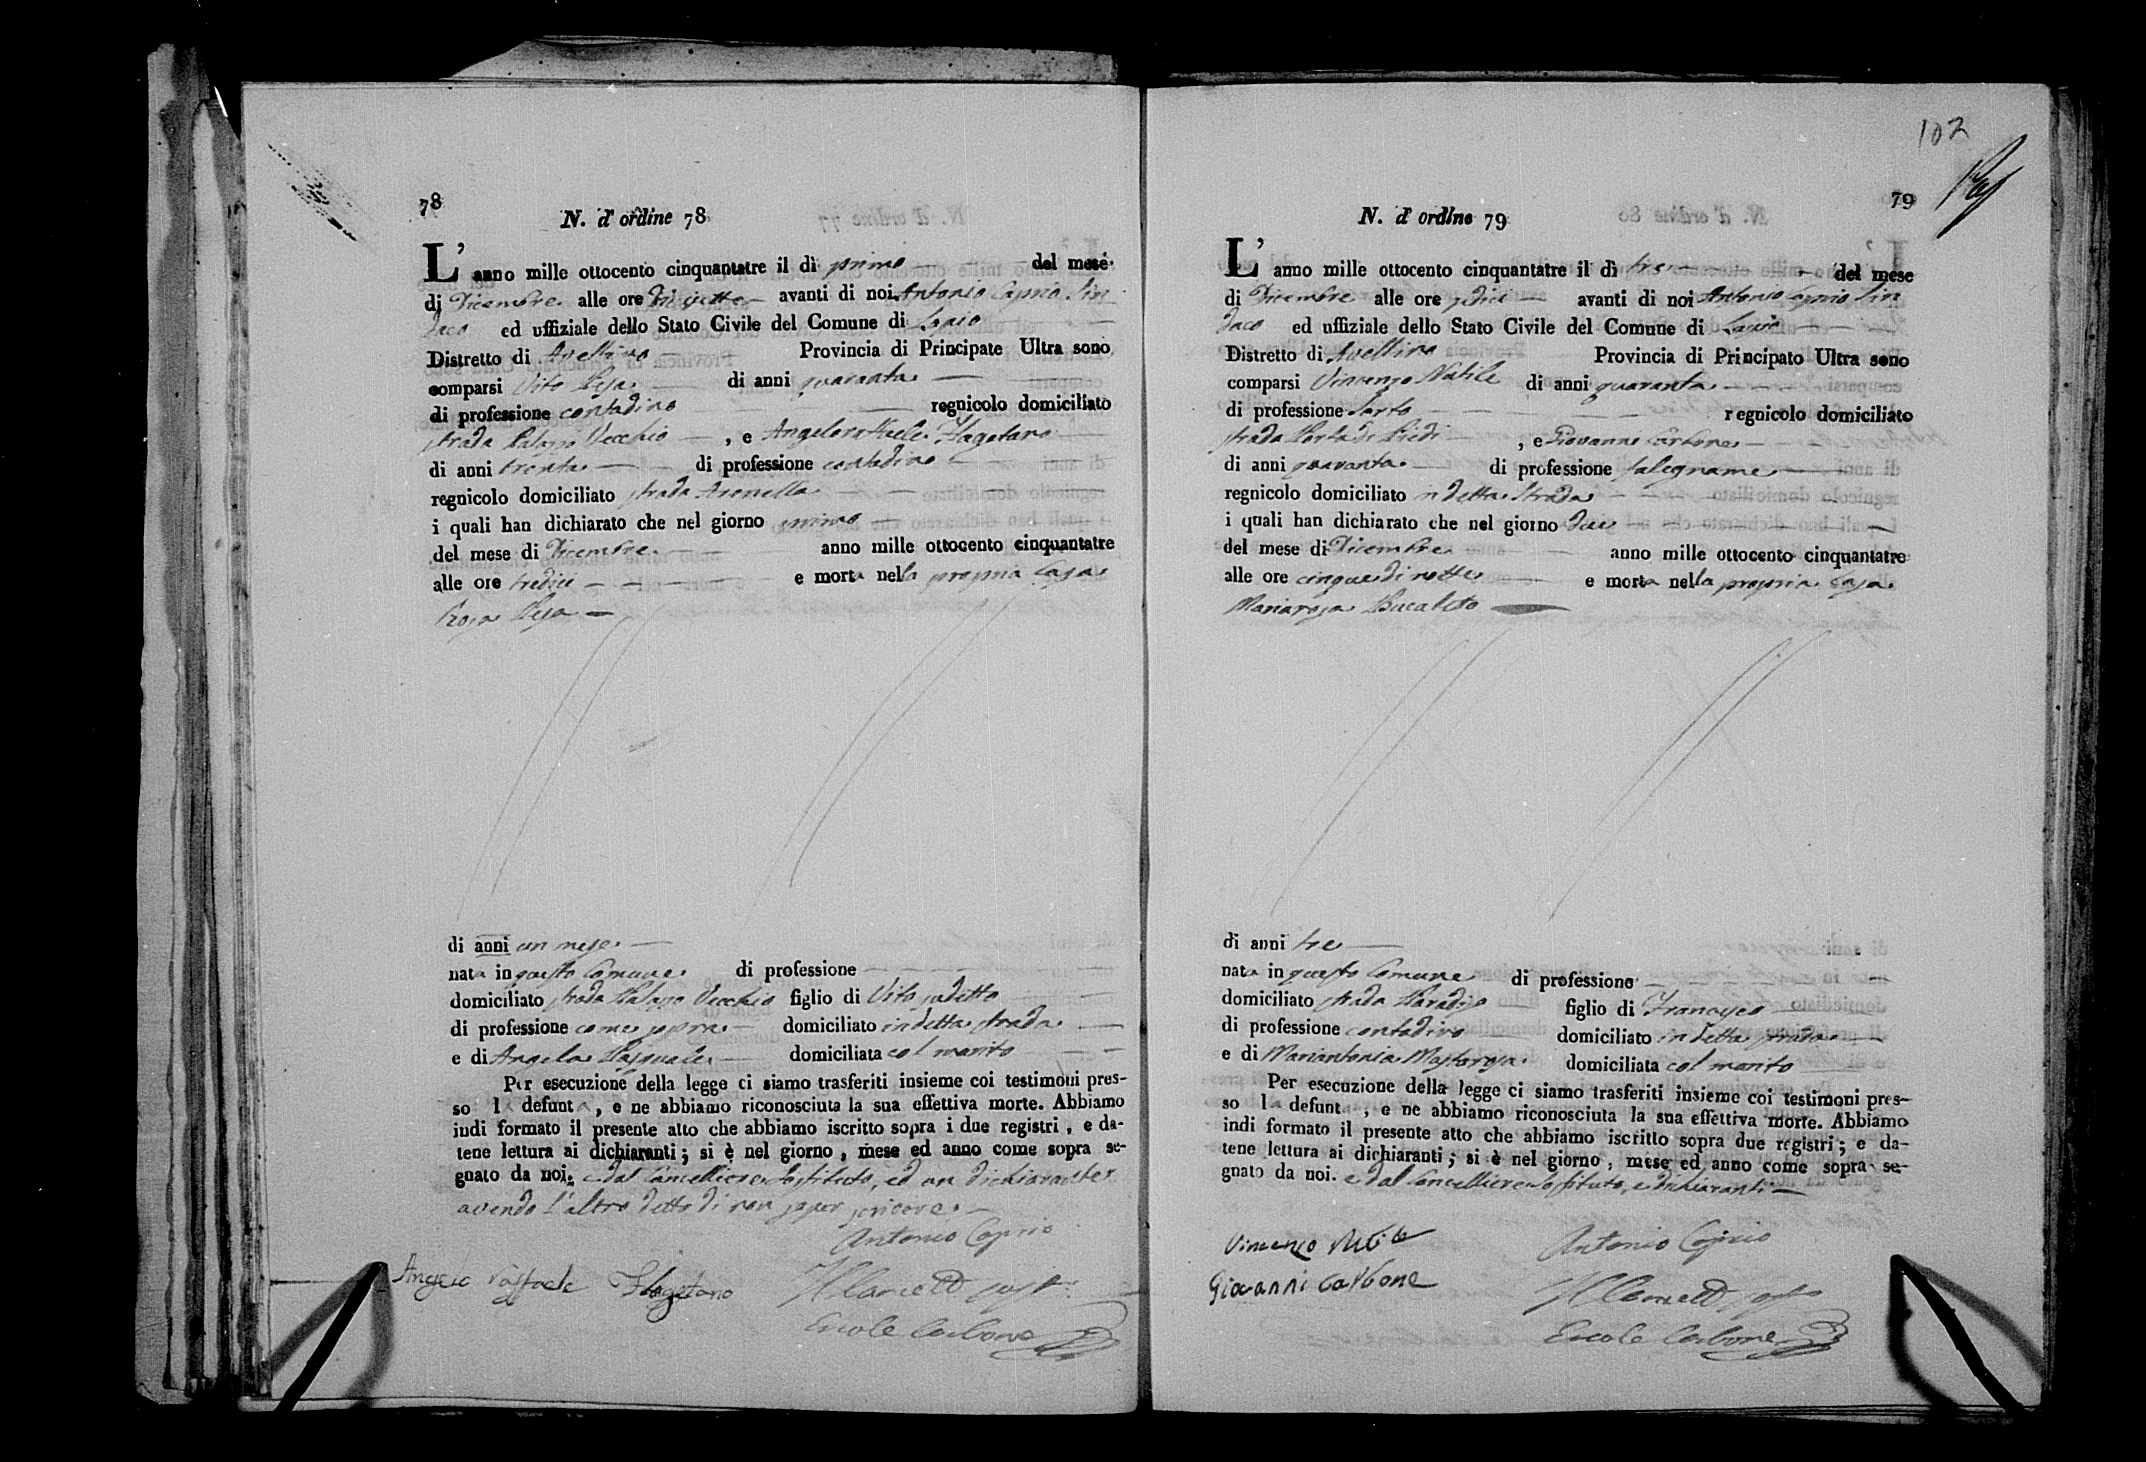 78
N. d' ordine 78
L' anno mille ottocento cinquantatre il dì primo del mese
di Dicembre alle ore avanti di noi Antonio Caprio Sin
daco ed uffiziale dello Stato Civile del Comune di Lapio
Distretto di Avellino Provincia di Principate Ultra sono
comparsi Vito Pisa di anni quaranta
di professione contadino regnicolo domiciliato
strada Palazzo Vecchio , e Angeloraffaele Flagetano
di anni trenta di professione contadino
regnicolo domiciliato strada Arenella
i quali han dichiarato che nel giorno primo
del mese di Dicembre anno mille ottocento cinquantatre
alle ore tredici e morta nella propria casa
Rosa Pisa
di anni un mese
nata in questo Comune di professione
domiciliato strada Palazzo Vecchio figlio di Vito sudetto
di professione come sopra domiciliato in detta strada
e di Angela Pasquale domiciliata col marito
Per esecuzione della legge ci siamo trasferiti insieme coi testimoni pres-
so la defunta, e ne abbiamo riconosciuta la sua effettiva morte. Abbiamo
indi formato il presente atto che abbiamo iscritto sopra i due registri, e da-
tene lettura ai dichiaranti; si è nel giorno, mese ed anno come sopra se-
gnato da noi. e dal Cancelliere sostituto, ed un dichiarante
avendo l'altro detto di non saper scrivere.
Antonio Caprio
Angelo raffaele Flagetano
Ercole Carbone
102
79
N. d' ordine 79
L' anno mille ottocento cinquantatre il dì tre del mese
di Dicembre alle ore sedici avanti di noi Antonio Caprio Sin
daco ed uffiziale dello Stato Civile del Comune di Lapio
Distretto di Avellino Provincia di Principato Ultra sono
comparsi Vincenzo Natile di anni quaranta
di professione Sarto regnicolo domiciliato
strada Porta di Piedi , e Giovanni Carbone
di anni quaranta di professione falegname
regnicolo domiciliato in detta Strada
i quali han dichiarato che nel giorno due
del mese di Dicembre anno mille ottocento cinquantatre
alle ore cinque di notte e morta nella propria casa
Mariarosa
di anni tre
nata in questo Comune di professione
domiciliato strada Paradiso figlio di Francesco
di professione contadino domiciliato in detta strada
e di Mariantonia Mastarosa domiciliata col marito
Per esecuzione della legge ci siamo trasferiti insieme coi testimoni pres-
so la defunta, e ne abbiamo riconosciuta la sua effettiva morte. Abbiamo
indi formato il presente atto che abbiamo iscritto sopra due registri; e da-
tene lettura ai dichiaranti; si è nel giorno, mese ed anno come sopra se-
gnato da noi. e dal Cancelliere sostituto, e dichiaranti
Vincenzo
Antonio Caprio
Giovanni Carbone
Ercole Carbone